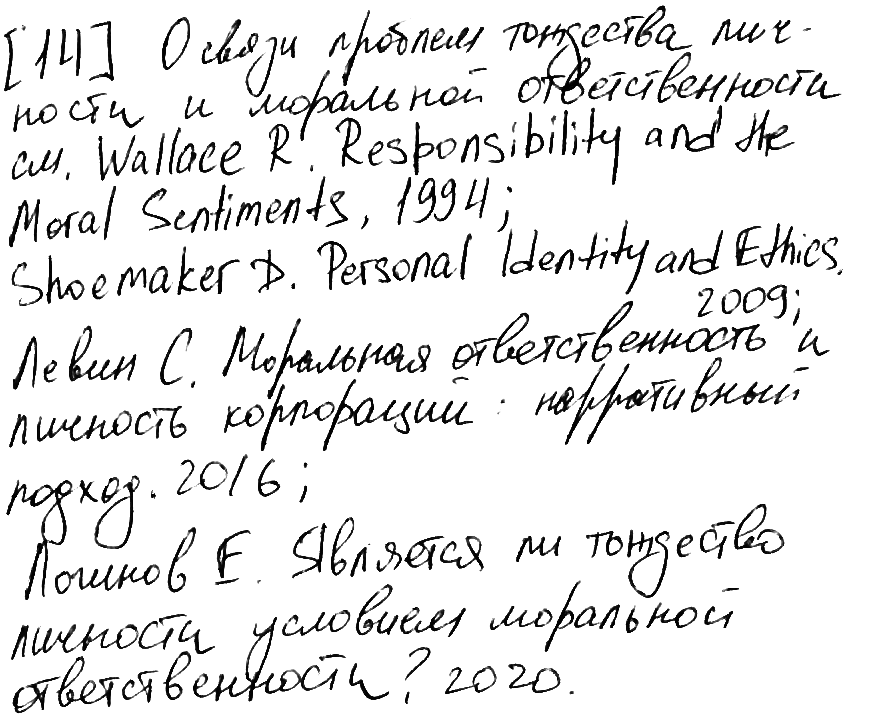 [14] О связи проблем тождества лич-
ности и моральной ответственности
см. Wallace R. Responsibility and the
Moral Sentiments, 1994;
Shoemaker D. Personal Identity and Ethics.
2009;
Левин С. Моральная ответственность и
личность корпораций: нарративный
подход. 2016;
Логинов Е. Является ли тождество
личности условием моральной
ответственности? 2020.